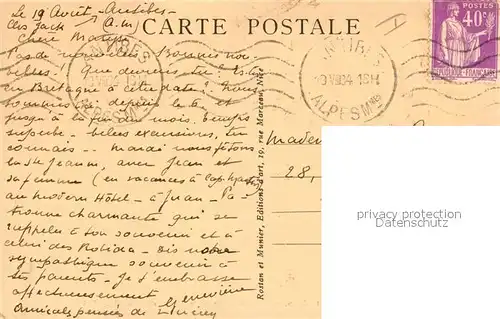 Le 19 Août - Antibes -
Clos Jack A.M.
CARTE POSTALE
POSTES
40c
RÉPUBLIQUE FRANÇAISE
ANTIBES
ALPES Mmes
Chère
Pas de nouvelles. Bonnes nou-
velles! Que deviens-tu? Es-tu
en Bretagne à cette date? Nous
sommes ici depuis le 1er et
jusqu'à la fin du mois. Temps
superbe - belles excursions, tu
connais - Mardi nous fêtons
la St Jeanne, avec Jean et
sa femme (en vacances à Cap Martin)
au Modern Hôtel - à Juan - Pa-
tronne charmante qui se
rappelle à ton souvenir et à
celui des - Dis notre
sympathique souvenir à
tes parents - Je t'embrasse
affectueusement Geneviève
Amicales pensées de
Rostan et Munier, Editions d'art, 19, rue Marceau, Nice
Madem
28,
privacy protection
Datenschutz